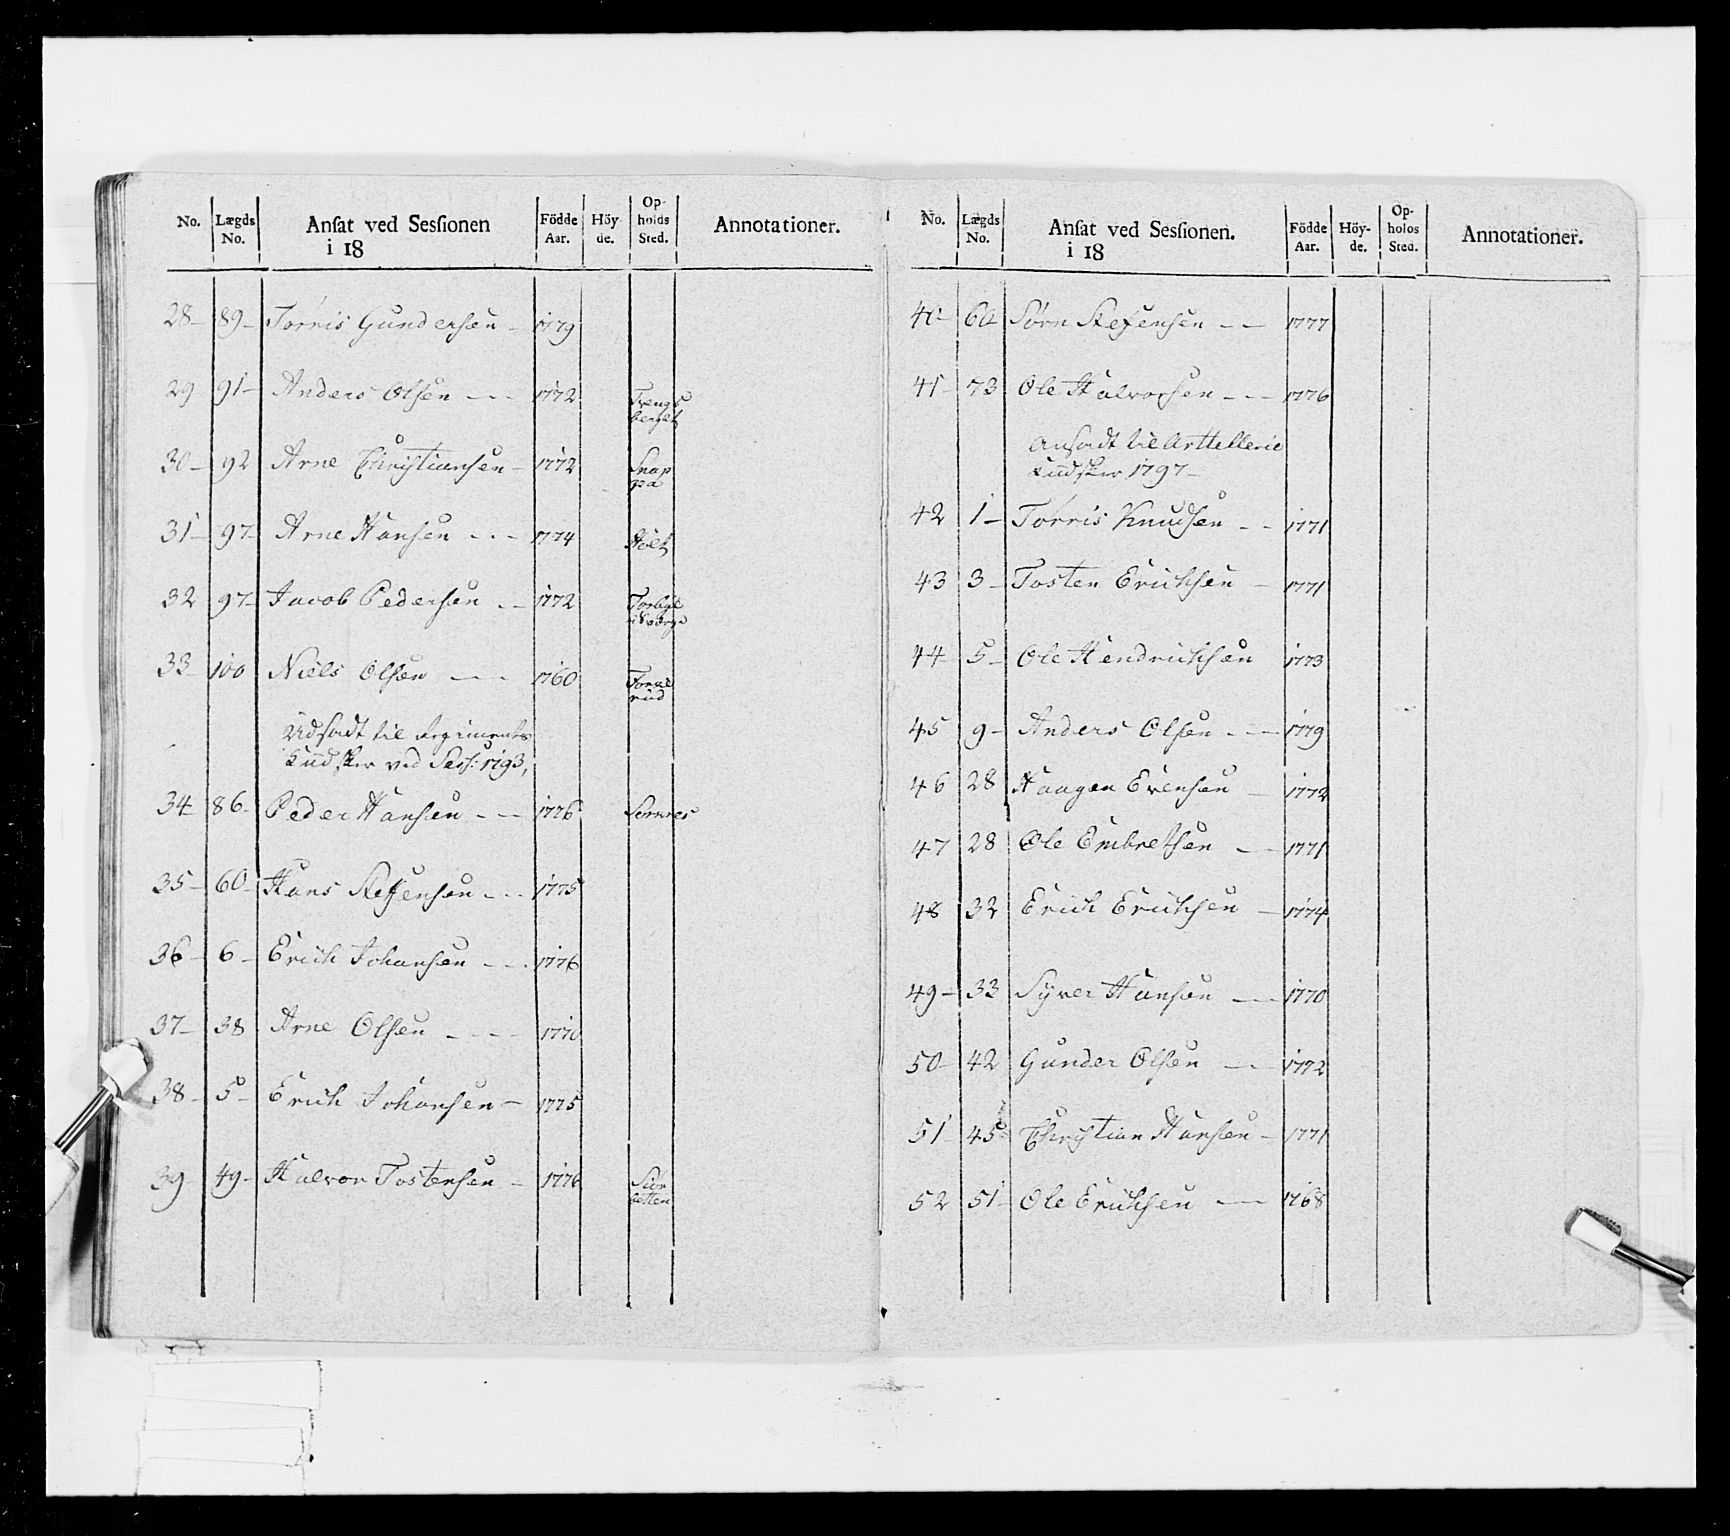 No. Lægds No. Ansat ved Sessionen i 18 Födde Aar. Höyde. Opholds Sted. Annotationer.
28 – 89 – Torris Gundersen – 1779
29 91 – Anders Olsen – – – 1772
30 – 92 Arne Christiansen – 1772
31 – 97 – Arne Hansen – – – 1774 Holt
32 97 – Jacob Pedersen – – 1772
33 – 100 Niels Olsen – – 1760
Udsadt til Regiments
Kudsker ved Sess: 1793,
34 – 86 – Peder Hansen – – 1776
35 – 60 – Hans Steffensen – – – 1775
36 – 6 – Erich Johansen – – – 1776
37 – 38 Arne Olsen – – – – 1770
38 – 5 – Erich Johansen – 1775
39 49 – Halvor Tostensen – 1776
No. Lægds No. Ansat ved Sessionen. i 18 Födde Aar. Höy-de. Op-holds Sted. Annotationer.
40 – 60 Sörn Stefensen – – 1777
41 – 73 Ole Halvorsen – – – 1776
Ansadt til Arttellerie
Kudsker 1797 –
42 1 – Torris Knudsen – – 1771
43 3 – Tosten Erichsen – 1771
44 5 – Ole Hendrichsen 1773
45 9 – Anders Olsen – – – 1779
46 28 Haagen Evensen – 1772
47 28 Ole Embretsen – – 1771
48 32 Erich Erichsen – 1774
49 – 33 Syver Hansen – – 1770
50 – 42 Gunder Olsen – – 1772
51 – 45 Christian Hansen – 1771
52 51 – Ole Erichsen – – 1768